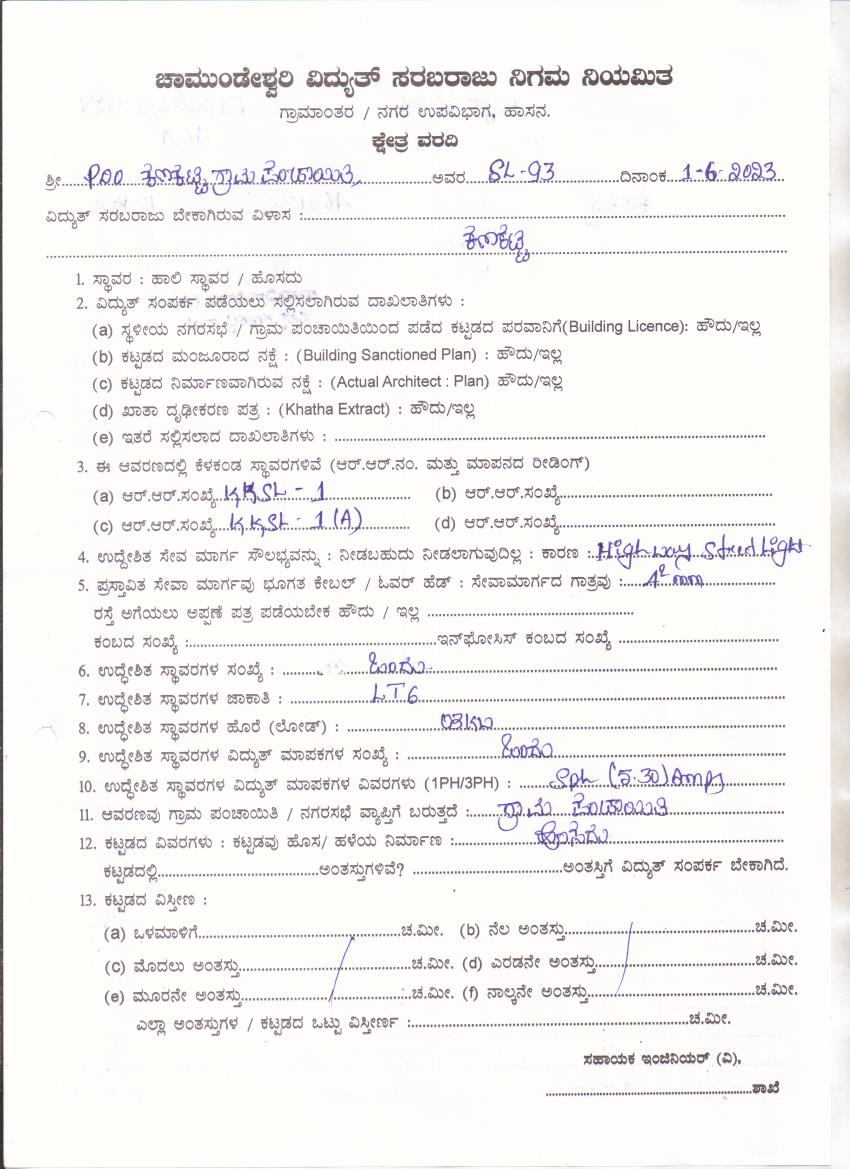 ಚಾಮುಂಡೇಶ್ವರಿ ವಿದ್ಯುತ್ ಸರಬರಾಜು ನಿಗಮ ನಿಯಮಿತ
ಗ್ರಾಮಾಂತರ / ನಗರ ಉಪವಿಭಾಗ, ಹಾಸನ.
ಕ್ಷೇತ್ರ ವರದಿ
ಶ್ರೀ PDO ಕಣಕಟ್ಟೆ ಗ್ರಾಮ ಪಂಚಾಯಿತಿ ಅವರ SL-93 ದಿನಾಂಕ 1-6-2023
ವಿದ್ಯುತ್ ಸರಬರಾಜು ಬೇಕಾಗಿರುವ ವಿಳಾಸ :
ಕಣಕಟ್ಟೆ
1. ಸ್ಥಾವರ : ಹಾಲಿ ಸ್ಥಾವರ / ಹೊಸದು
2. ವಿದ್ಯುತ್ ಸಂಪರ್ಕ ಪಡೆಯಲು ಸಲ್ಲಿಸಲಾಗಿರುವ ದಾಖಲಾತಿಗಳು :
(a) ಸ್ಥಳೀಯ ನಗರಸಭೆ / ಗ್ರಾಮ ಪಂಚಾಯಿತಿಯಿಂದ ಪಡೆದ ಕಟ್ಟಡದ ಪರವಾನಿಗೆ(Building Licence): ಹೌದು/ಇಲ್ಲ
(b) ಕಟ್ಟಡದ ಮಂಜೂರಾದ ನಕ್ಷೆ : (Building Sanctioned Plan) : ಹೌದು/ಇಲ್ಲ
(c) ಕಟ್ಟಡದ ನಿರ್ಮಾಣವಾಗಿರುವ ನಕ್ಷೆ : (Actual Architect : Plan) ಹೌದು/ಇಲ್ಲ
(d) ಖಾತಾ ದೃಢೀಕರಣ ಪತ್ರ : (Khatha Extract) : ಹೌದು/ಇಲ್ಲ
(e) ಇತರೆ ಸಲ್ಲಿಸಲಾದ ದಾಖಲಾತಿಗಳು :
3. ಈ ಆವರಣದಲ್ಲಿ ಕೆಳಕಂಡ ಸ್ಥಾವರಗಳಿವೆ (ಆರ್.ಆರ್.ನಂ. ಮತ್ತು ಮಾಪನದ ರೀಡಿಂಗ್)
(a) ಆರ್.ಆರ್.ಸಂಖ್ಯೆ KKSL - 1 (b) ಆರ್.ಆರ್.ಸಂಖ್ಯೆ
(c) ಆರ್.ಆರ್.ಸಂಖ್ಯೆ KKSL - 1 (A) (d) ಆರ್.ಆರ್.ಸಂಖ್ಯೆ
4. ಉದ್ದೇಶಿತ ಸೇವ ಮಾರ್ಗ ಸೌಲಭ್ಯವನ್ನು : ನೀಡಬಹುದು ನೀಡಲಾಗುವುದಿಲ್ಲ : ಕಾರಣ : High way Street Light
5. ಪ್ರಸ್ತಾವಿತ ಸೇವಾ ಮಾರ್ಗವು ಭೂಗತ ಕೇಬಲ್ / ಓವರ್ ಹೆಡ್ : ಸೇವಾಮಾರ್ಗದ ಗಾತ್ರವು : 4² mm
ರಸ್ತೆ ಅಗೆಯಲು ಅಪ್ಪಣೆ ಪತ್ರ ಪಡೆಯಬೇಕ ಹೌದು / ಇಲ್ಲ
ಕಂಬದ ಸಂಖ್ಯೆ : ಇನ್‌ಫೋಸಿಸ್ ಕಂಬದ ಸಂಖ್ಯೆ
6. ಉದ್ಧೇಶಿತ ಸ್ಥಾವರಗಳ ಸಂಖ್ಯೆ : ಒಂದು
7. ಉದ್ಧೇಶಿತ ಸ್ಥಾವರಗಳ ಜಾಕಾತಿ : LT6
8. ಉದ್ಧೇಶಿತ ಸ್ಥಾವರಗಳ ಹೊರೆ (ಲೋಡ್) :
9. ಉದ್ಧೇಶಿತ ಸ್ಥಾವರಗಳ ವಿದ್ಯುತ್ ಮಾಪಕಗಳ ಸಂಖ್ಯೆ : ಒಂದು
10. ಉದ್ಧೇಶಿತ ಸ್ಥಾವರಗಳ ವಿದ್ಯುತ್ ಮಾಪಕಗಳ ವಿವರಗಳು (1PH/3PH) : (5-30) Amps
11. ಆವರಣವು ಗ್ರಾಮ ಪಂಚಾಯಿತಿ / ನಗರಸಭೆ ವ್ಯಾಪ್ತಿಗೆ ಬರುತ್ತದೆ : ಗ್ರಾಮ ಪಂಚಾಯಿತಿ
12. ಕಟ್ಟಡದ ವಿವರಗಳು : ಕಟ್ಟಡವು ಹೊಸ/ ಹಳೆಯ ನಿರ್ಮಾಣ : ಹೊಸದು
ಕಟ್ಟಡದಲ್ಲಿ ಅಂತಸ್ತುಗಳಿವೆ? ಅಂತಸ್ತಿಗೆ ವಿದ್ಯುತ್ ಸಂಪರ್ಕ ಬೇಕಾಗಿದೆ.
13. ಕಟ್ಟಡದ ವಿಸ್ತೀಣ :
(a) ಒಳಮಾಳಿಗೆ ಚ.ಮೀ. (b) ನೆಲ ಅಂತಸ್ತು ಚ.ಮೀ.
(c) ಮೊದಲು ಅಂತಸ್ತು ಚ.ಮೀ. (d) ಎರಡನೇ ಅಂತಸ್ತು ಚ.ಮೀ.
(e) ಮೂರನೇ ಅಂತಸ್ತು ಚ.ಮೀ. (f) ನಾಲ್ಕನೇ ಅಂತಸ್ತು ಚ.ಮೀ.
ಎಲ್ಲಾ ಅಂತಸ್ತುಗಳ / ಕಟ್ಟಡದ ಒಟ್ಟು ವಿಸ್ತೀರ್ಣ : ಚ.ಮೀ.
ಸಹಾಯಕ ಇಂಜಿನಿಯರ್ (ವಿ),
ಶಾಖೆ